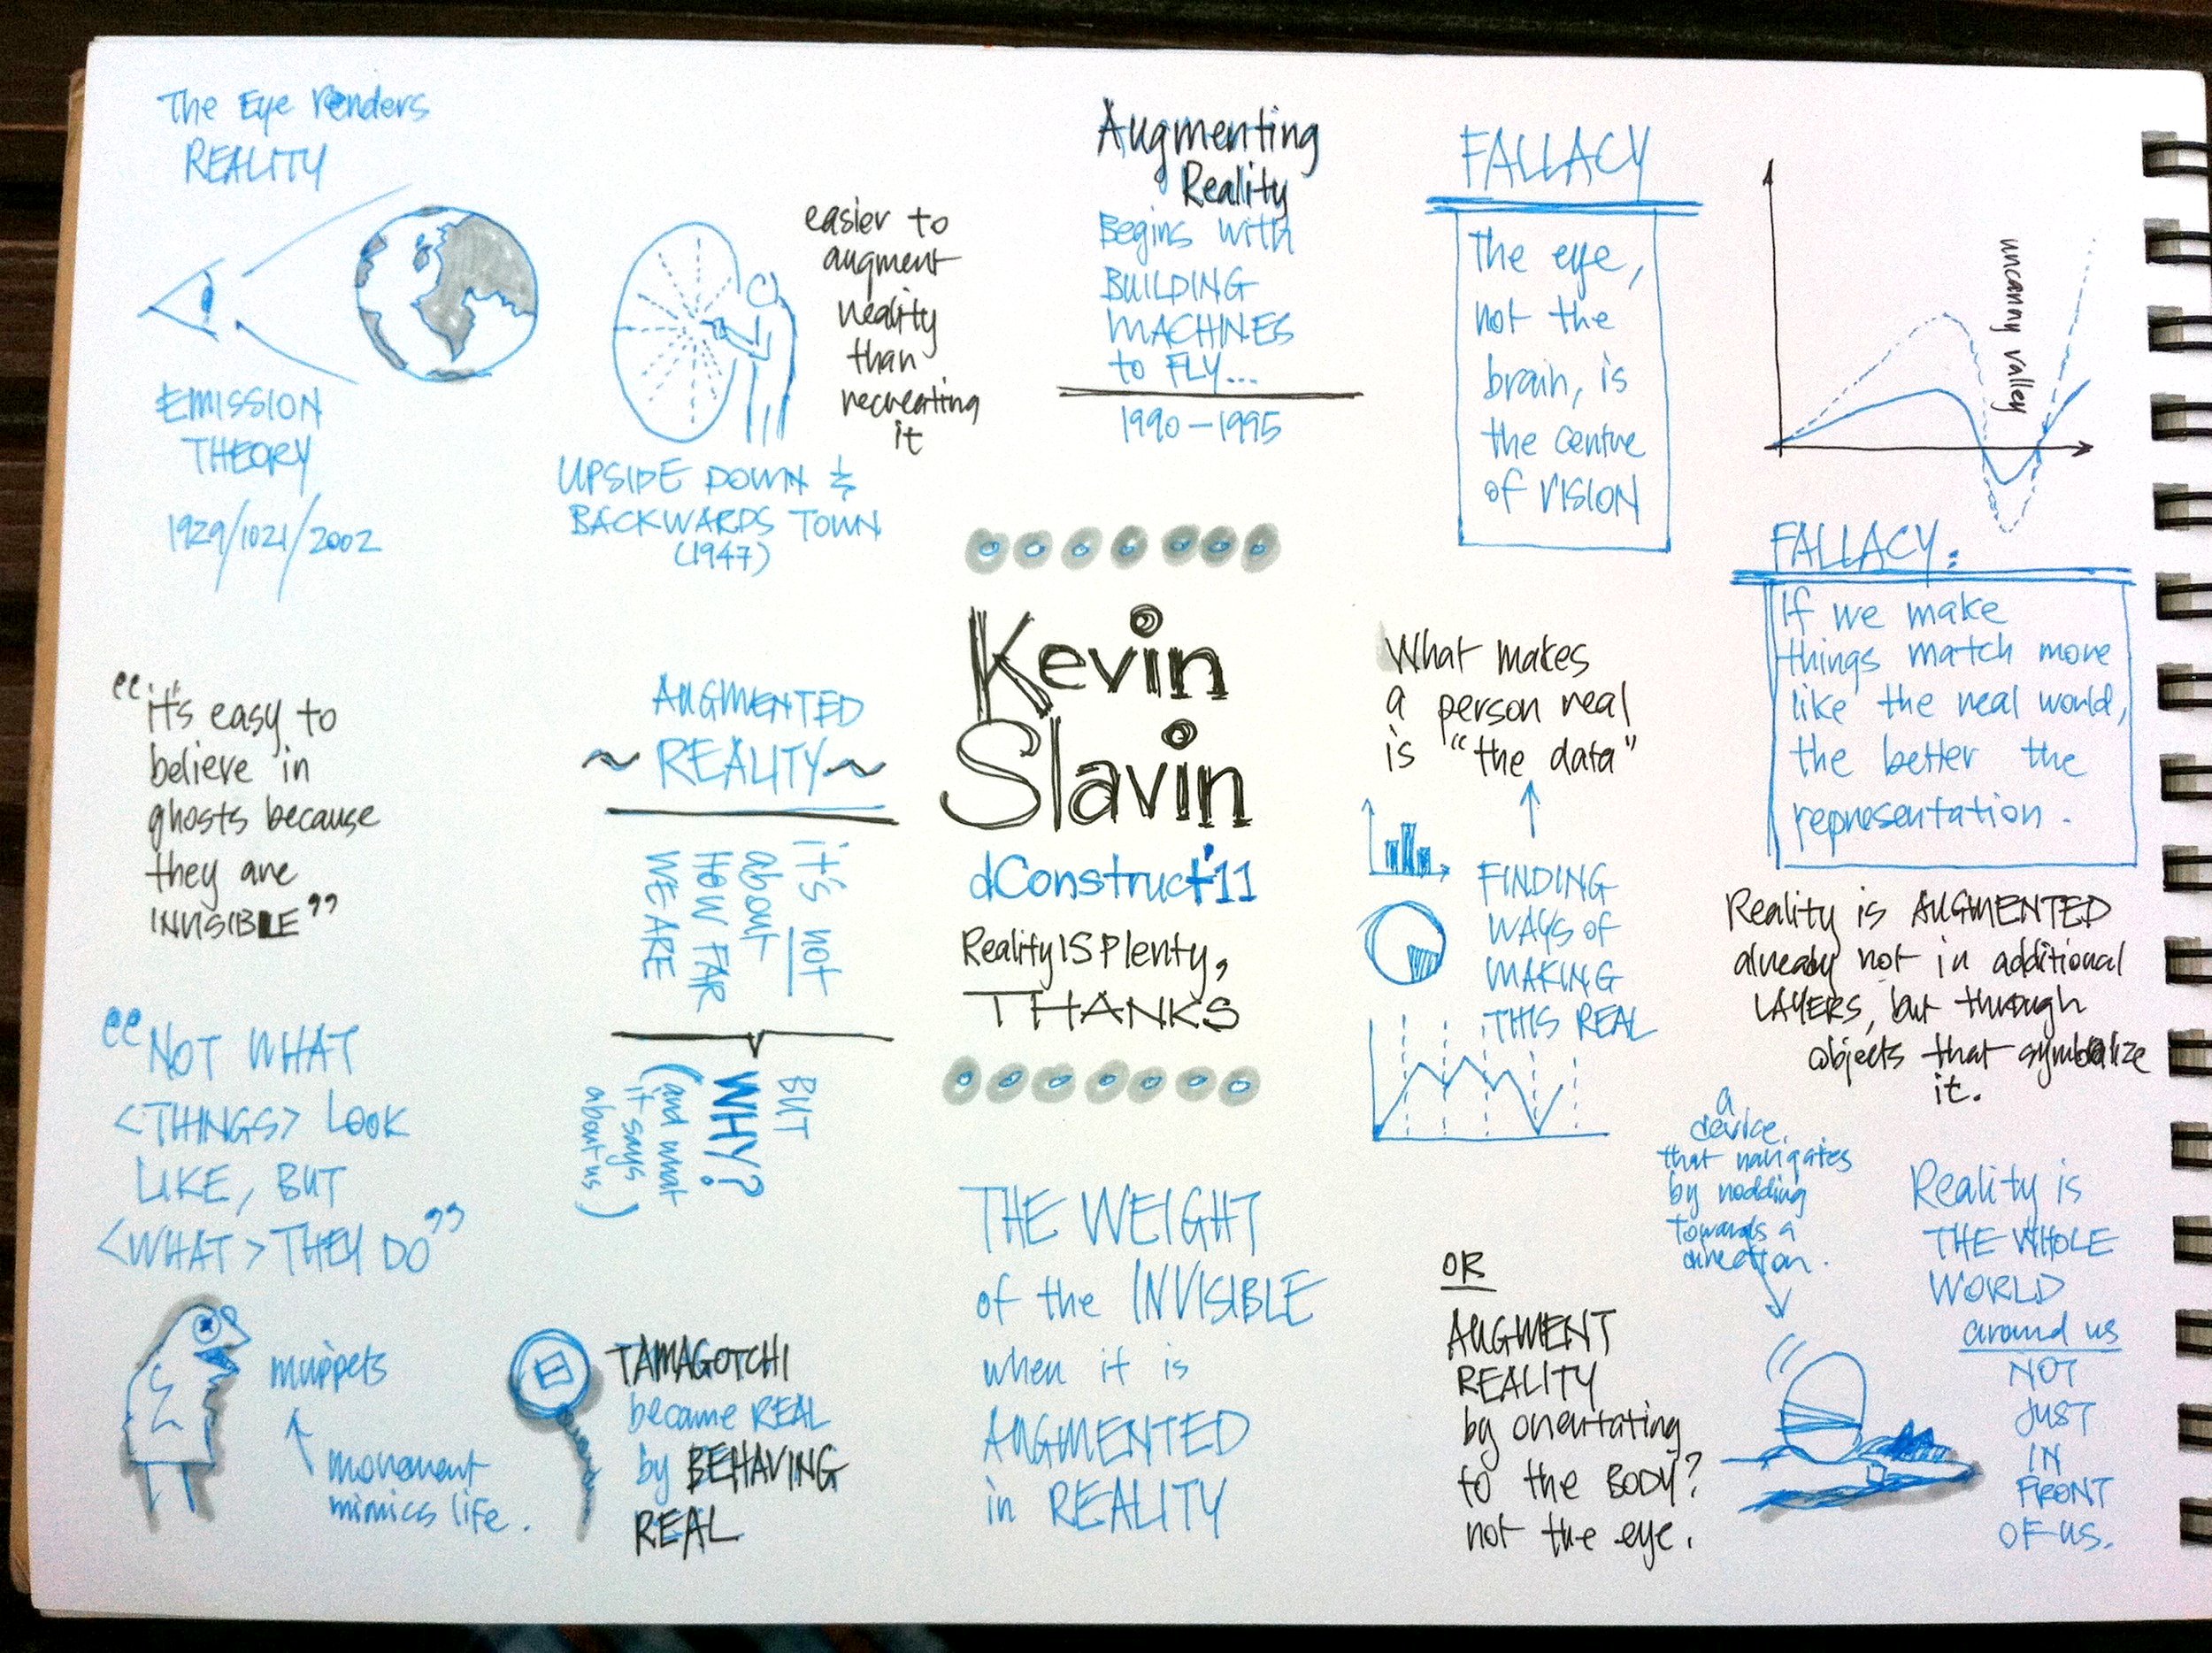 The Eye renders
REALITY
EMISSION
THEORY
1929/1021/2002
easier to
augment
reality
than
recreating
it
UPSIDE DOWN &
BACKWARDS TOWN
(1947)
Augmenting
Reality
Begins with
BUILDING
MACHINES
to FLY...
1990-1995
FALLACY
The eye,
not the
brain, is
the centre
of VISION
uncanny valley
FALLACY:
If we make
things match more
like the real world,
the better the
representation.
"it's easy to
believe in
ghosts because
they are
INVISIBLE"
AUGMENTED
~ REALITY ~
it's not
about
HOW FAR
WE ARE
BUT
WHY?
(and what
it says
about us)
Kevin
Slavin
dConstruct'11
Reality IS Plenty,
THANKS
What makes
a person real
is "the data"
FINDING
WAYS OF
MAKING
THIS REAL
Reality is AUGMENTED
already not in additional
LAYERS, but through
objects that symbolize
it.
"NOT WHAT
<THINGS> LOOK
LIKE, BUT
<WHAT> THEY DO"
muppets
movement
mimics life.
TAMAGOTCHI
became REAL
by BEHAVING
REAL
THE WEIGHT
of the INVISIBLE
when it is
AUGMENTED
in REALITY
OR
AUGMENT
REALITY
by orientating
to the BODY?
not the eye.
a
device
that navigates
by nodding
towards a
direction.
Reality is
THE WHOLE
WORLD
around us
NOT
JUST
IN
FRONT
OF US.